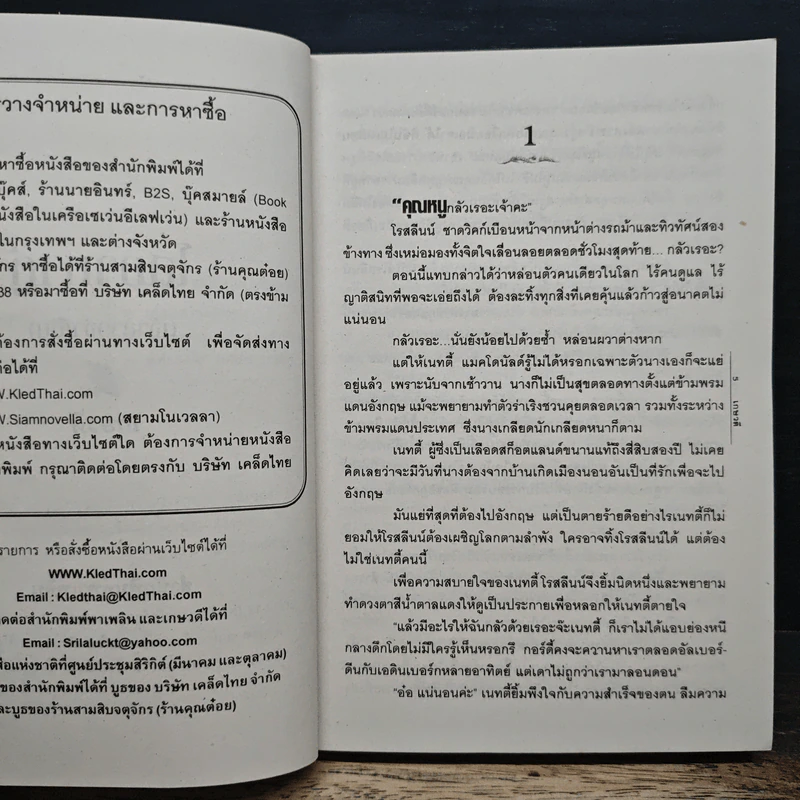 วางจำหน่าย และการหาซื้อ
หาซื้อหนังสือของสำนักพิมพ์ได้ที่
บุ๊คส์, ร้านนายอินทร์, B2S, บุ๊คสมายล์ (Book
นังสือในเครือเซเว่นอีเลฟเว่น) และร้านหนังสือ
ในกรุงเทพฯ และต่างจังหวัด
จักร หาซื้อได้ที่ร้านสามสิบจตุจักร (ร้านคุณต๋อย)
38 หรือมาซื้อที่ บริษัท เคล็ดไทย จำกัด (ตรงข้าม
ต้องการสั่งซื้อผ่านทางเว็บไซต์ เพื่อจัดส่งทาง
ต่อได้ที่
W.KledThai.com
W.Siamnovella.com (สยามโนเวลลา)
หนังสือทางเว็บไซต์ใด ต้องการจำหน่ายหนังสือ
พิมพ์ กรุณาติดต่อโดยตรงกับ บริษัท เคล็ดไทย
รายการ หรือสั่งซื้อหนังสือผ่านเว็บไซต์ได้ที่
WWW.KledThai.com
Email : Kledthai@KledThai.com
ดต่อสำนักพิมพ์พาเพลิน และเกษวดีได้ที่
Email : Srilaluckt@yahoo.com
สือแห่งชาติที่ศูนย์ประชุมสิริกิต์ (มีนาคม และตุลาคม)
ของสำนักพิมพ์ได้ที่ บูธของ บริษัท เคล็ดไทย จำกัด
ละบูธของร้านสามสิบจตุจักร (ร้านคุณต๋อย)
1
"คุณหนูกลัวเรอะเจ้าคะ"
โรสลีนน์ ชาดวิคก์เบือนหน้าจากหน้าต่างรถม้าและทิวทัศน์สอง
ข้างทาง ซึ่งเหม่อมองทั้งจิตใจเลื่อนลอยตลอดชั่วโมงสุดท้าย... กลัวเรอะ?
ตอนนี้แทบกล่าวได้ว่าหล่อนตัวคนเดียวในโลก ไร้คนดูแล ไร้
ญาติสนิทที่พอจะเอ่ยถึงได้ ต้องละทิ้งทุกสิ่งที่เคยคุ้นแล้วก้าวสู่อนาคตไม่
แน่นอน
กลัวเรอะ...นั่นยังน้อยไปด้วยซ้ำ หล่อนผวาต่างหาก
แต่ให้เนทตี้ แมคโดนัลด์รู้ไม่ได้หรอกเฉพาะตัวนางเองก็จะแย่
อยู่แล้ว เพราะนับจากเช้าวาน นางก็ไม่เป็นสุขตลอดทางตั้งแต่ข้ามพรม
แดนอังกฤษ แม้จะพยายามทำตัวร่าเริงชวนคุยตลอดเวลา รวมทั้งระหว่าง
ข้ามพรมแดนประเทศ ซึ่งนางเกลียดนักเกลียดหนาก็ตาม
เนทตี้ ผู้ซึ่งเป็นเลือดสก็อตแลนด์ขนานแท้ถึงสี่สิบสองปี ไม่เคย
คิดเลยว่าจะมีวันที่นางต้องจากบ้านเกิดเมืองนอนอันเป็นที่รักเพื่อจะไป
อังกฤษ
มันแย่ที่สุดที่ต้องไปอังกฤษ แต่เป็นตายร้ายดีอย่างไรเนทตี้ก็ไม่
ยอมให้โรสลีนน์ต้องเผชิญโลกตามลำพัง ใครอาจทิ้งโรสลีนน์ได้ แต่ต้อง
ไม่ใช่เนทตี้คนนี้
เพื่อความสบายใจของเนทตี้ โรสลีนน์จึงยิ้มนิดหนึ่งและพยายาม
ทำดวงตาสีน้ำตาลแดงให้ดูเป็นประกายเพื่อหลอกให้เนทตี้ตายใจ
"แล้วมีอะไรให้ฉันกลัวด้วยเรอะจ๊ะเนทตี้ ก็เราไม่ได้แอบย่องหนี
กลางดึกโดยไม่มีใครรู้เห็นหรอกรึ กอร์ดี้คงจะควานหาเราตลอดอัลเบอร์-
ดีนกับเอดินเบอร์กหลายอาทิตย์ แต่เดาไม่ถูกว่าเรามาลอนดอน"
"อ๋อ แน่นอนค่ะ" เนทตี้ยิ้มพึงใจกับความสำเร็จของตน ลืมความ
5
เกษวดี